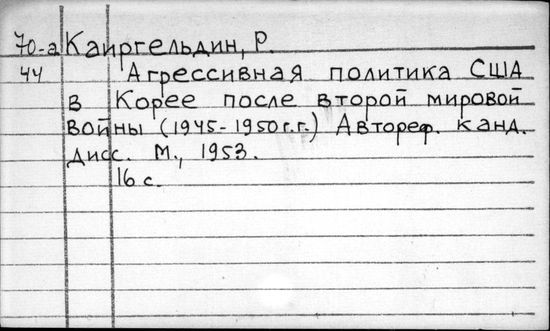 70-а Каиргельдин, Р.
44 Агрессивная политика США
в Корее после второй мировой
войны (1945-1950г.г.) Автореф. канд.
дисс. М., 1953.
16 с.